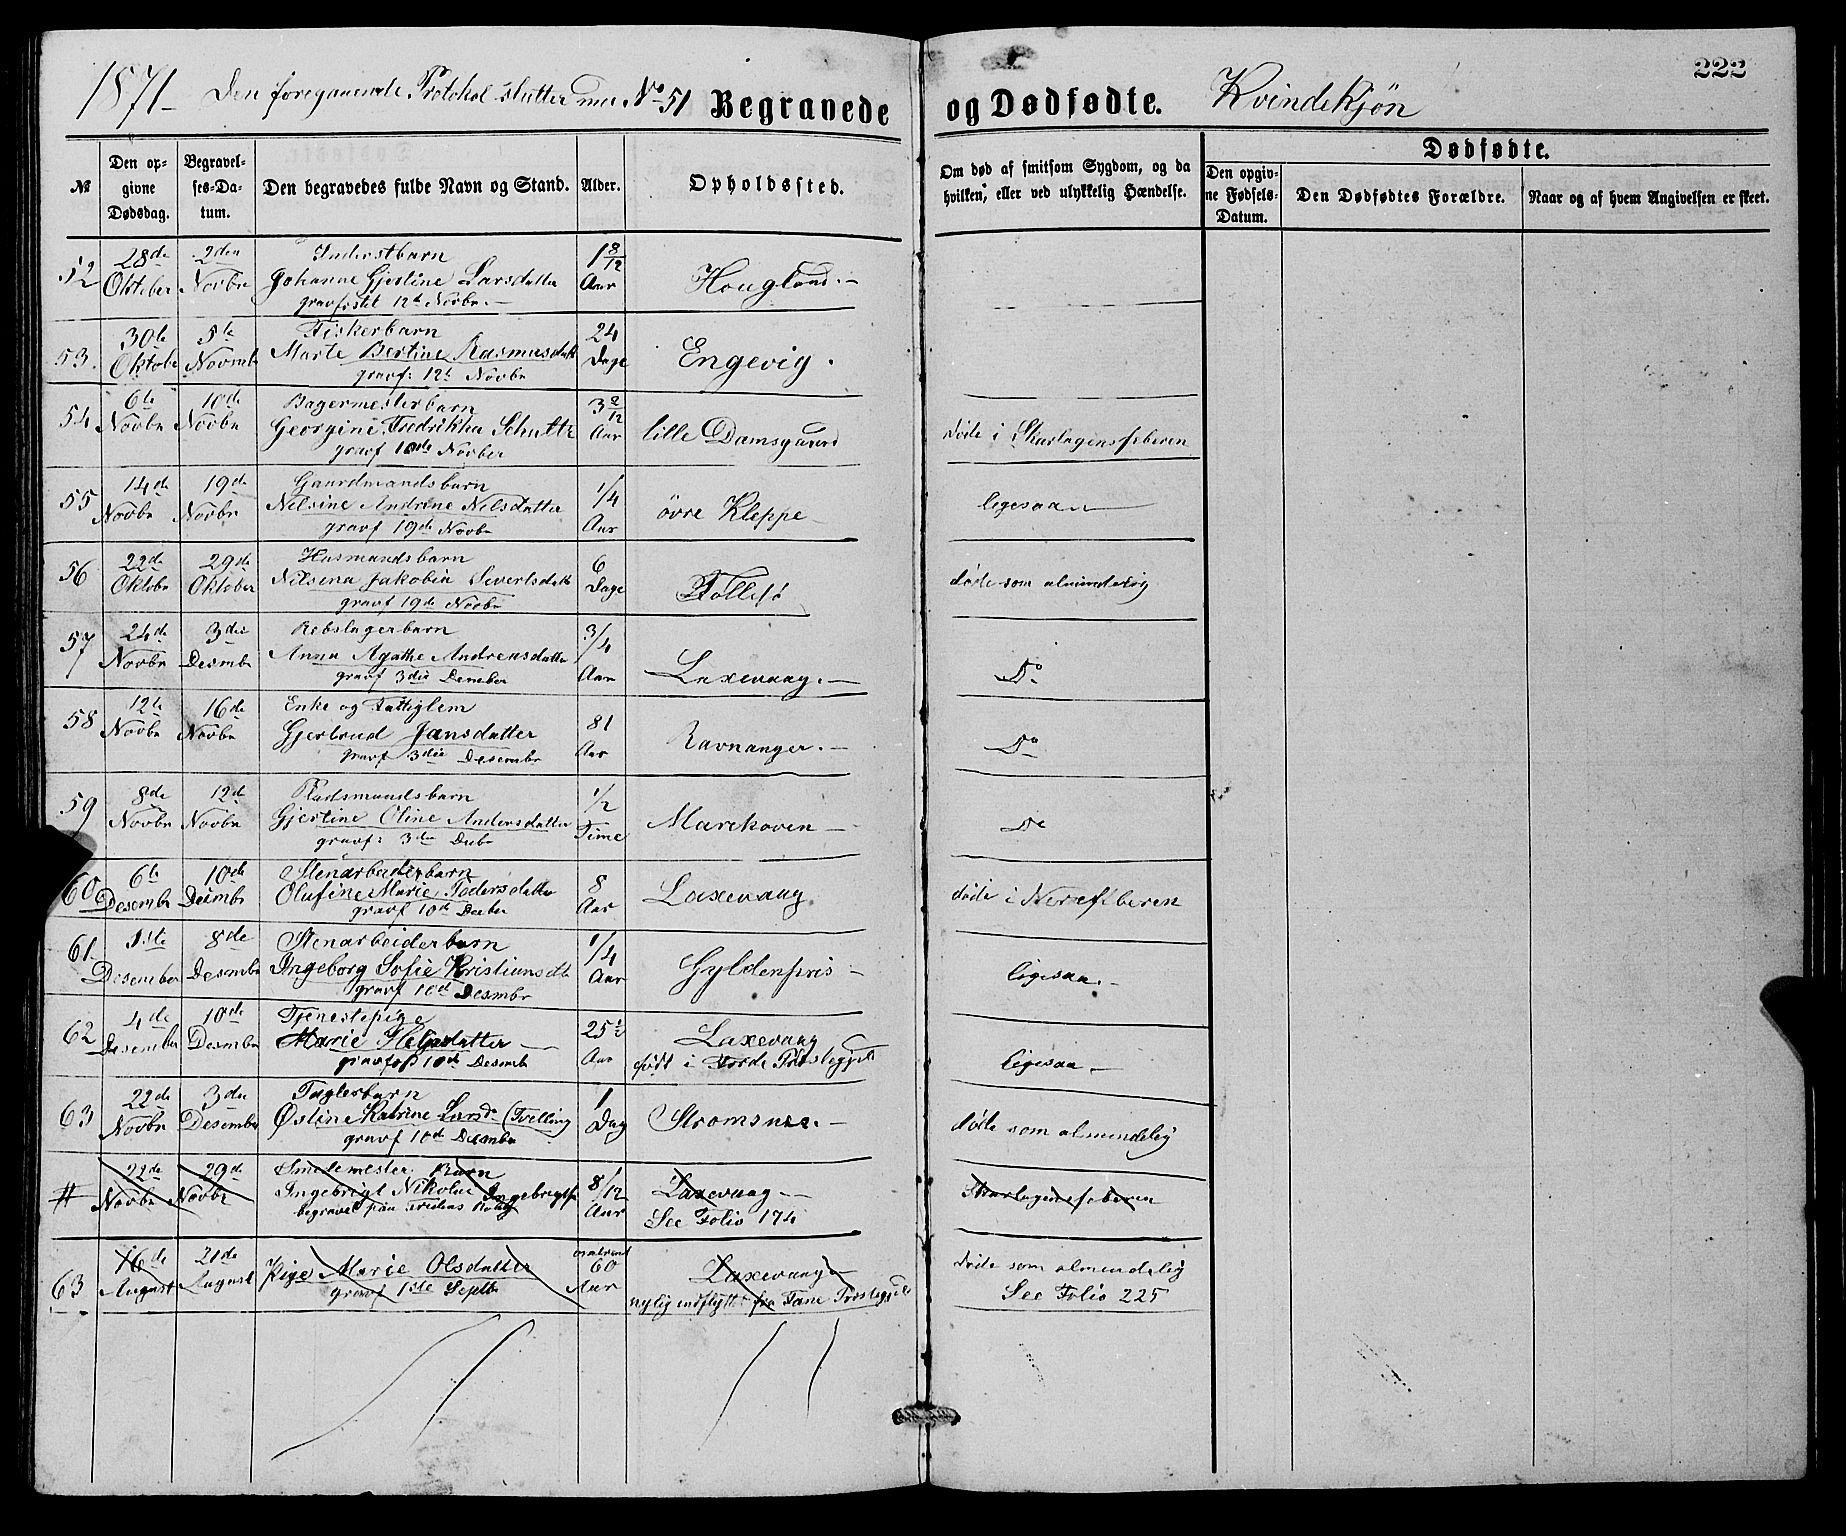 222
1871 – Den foregaaende Protokol slutter med No 51
Begravede og Dødfødte. Kvindekjøn
№ | Den opgivne Dødsdag. | Begravelses-Datum. | Den begravedes fulde Navn og Stand. | Alder. | Opholdssted. | Om død af smitsom Sygdom, og da hvilken; eller ved ulykkelig Hændelse. | Dødfødte.
Den opgivne Fødsels-Datum. | Den Dødfødtes Forældre. | Naar og af hvem Angivelsen er skeet.
52 | 28de Oktober | 2den Novbr | Inderstbarn
Johanne Gjertine Larsdatter | 1 8/12 Aar | Hougland. –
gravfestet 12te Novbr. –
53. | 30te Oktobr | 5te Novmbr | Fiskerbarn
Marte Bertine Rasmusdatt | 24 Dage | Engevig.
gravf: 12te Novbr
54 | 6te Novbr | 10de Novbr | Bagermesterbarn
Georgine Fredrikka Schultz | 3 2/12 Aar | lille Damsgaard | døde i Skarlagensfeberen
gravf 10de Novber
55 | 14de Novbr | 19de Novbr | Gaardmandsbarn
Nilsine Andrine Nilsdatter | 1/4 Aar | øvre Kleppe | ligesaa –
gravf 19de Novbr
56 | 22de Oktobr | 29de Oktober | Husmandsbarn
Nilsena Jakobin Sivertsdatt | 6 Dage | Follesø | døde som almindelig
gravf 19de Novbr
57 | 24de Novbr | 3die Desmbr | Rebslagerbarn
Anna Agathe Andreasdatter | 3/4 Aar | Laxevaag. – | Do
gravf 3die Desmber
58 | 12te Novbr | 16de Novbr | Enke og Fattiglem
Gjertrud Jansdatter | 81 Aar | Ravnanger. – | Do
gravf 3die Desembr
59 | 8de Novbr | 12te Novbr | Pladsmandsbarn
Gjertine Oline Andersdatter | 1/2 Time | Marikoven – | Do
gravf: 3die Desbr
60 | 6te Desembr | 10de Desmbr | Stenarbeiderbarn
Olufine Marie Pedersdatter | 8 Aar | Laxevaag | døde i Nervefeberen
gravf 10de Desber
61 | 1ste Desember | 8de Desmbr | Stenarbeiderbarn
Ingeborg Sofie Kristiansdt | 1/4 Aar | Gyldenpris – | ligesaa. –
gravf 10de Desmbr
62 | 4de Desember | 10de Desmbr | Tjenestepige
Marie Helgesdatter – | 25 1/2 Aar | Laxevaag | ligesaa –
gravf 10de Desembr | født i Førde Præstegjeld
63 | 22de Novbr | 3die Desember | Taglerbarn
Østine Katrine Larsd (Tvilling) | 1 Dag | Strømsnes. – | døde som almindelig
gravf 10de Desembr
# | 22de Novbr | 29de Novbr | Smedemester Barn
Ingebrigt Nikolai Ingebrigtsen | 8/12 Aar | Laxevaag – | Skarlagensfeberen
See Folio 174
63 | 16de August | 21de August | Pige Marie Olsdatter | omtrent 60 Aar | Laxevaag – | døde som almindelig
gravf 1ste Septbr | nylig indflyttet fra Fane Præstegjeld | See Folio 225